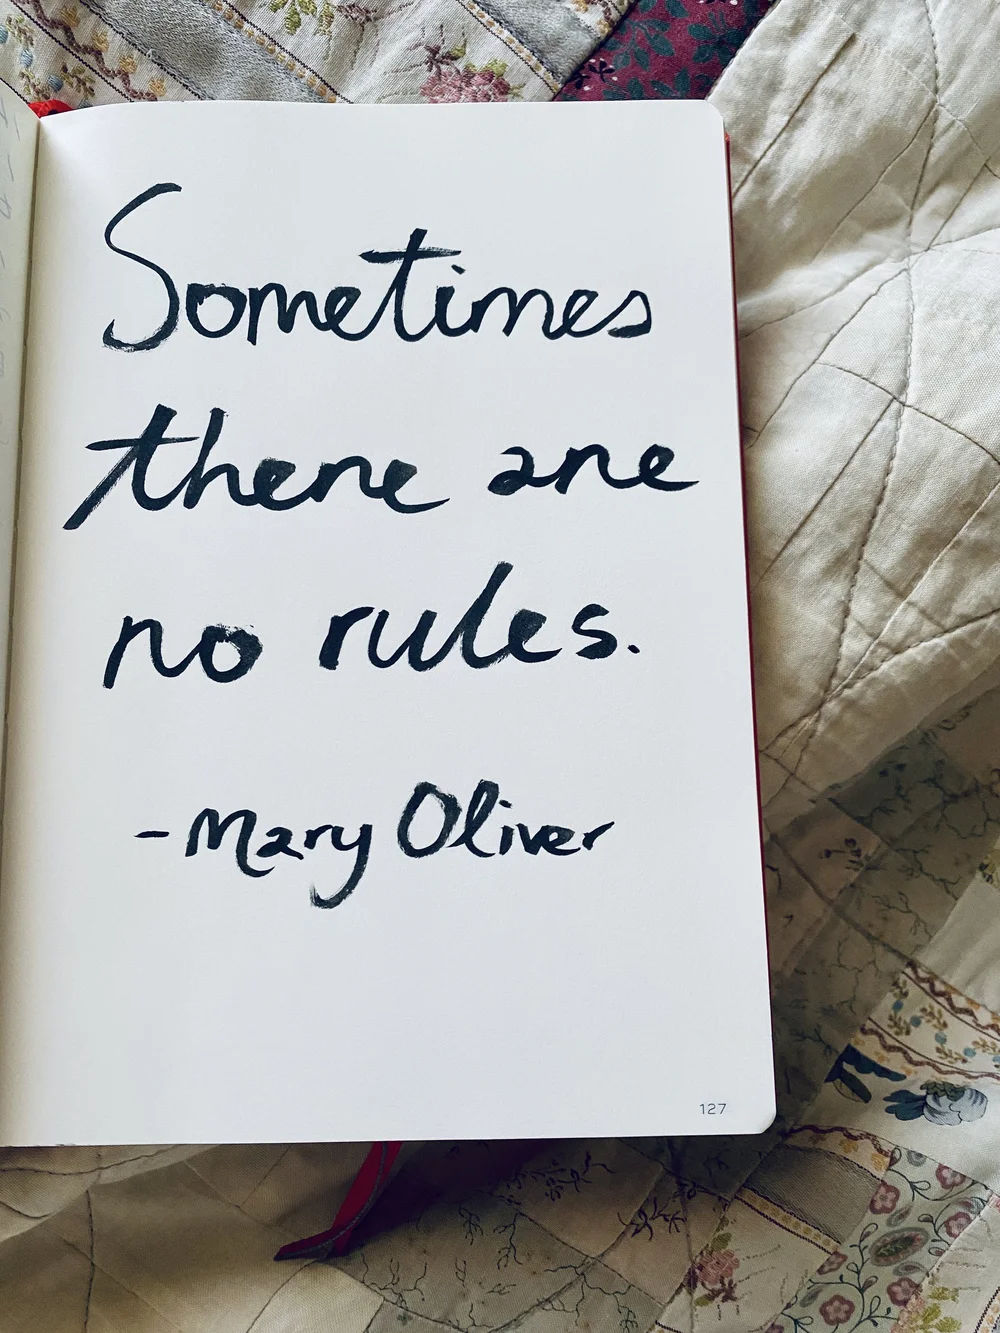 Sometimes
there are
no rules.
-Mary Oliver
127